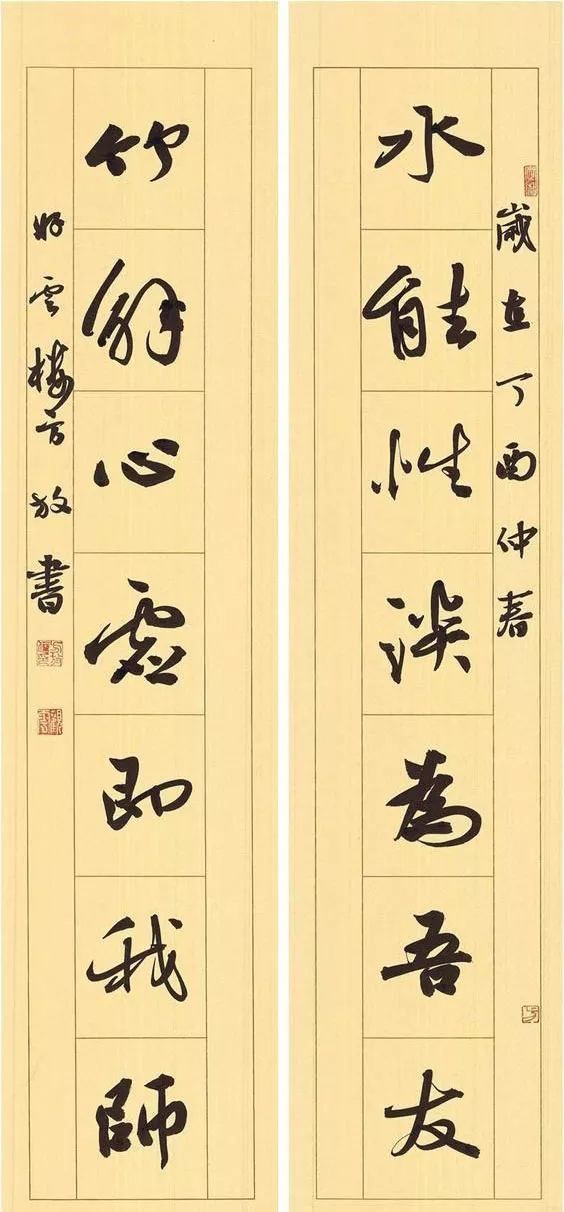 歲在丁酉仲春
水能性淡為吾友
竹解心虛即我師
好雲樓方放書